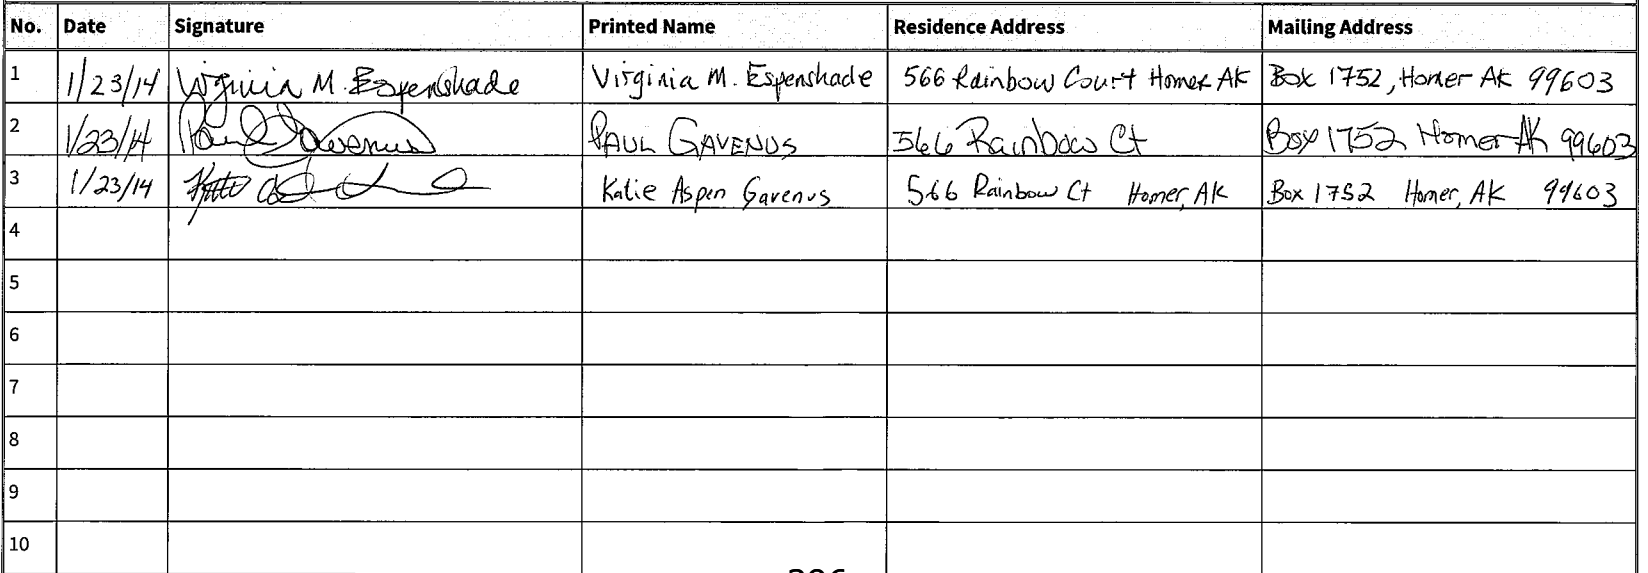 No. Date Signature Printed Name Residence Address Mailing Address
1 1/23/14 Virginia M. Espenshade Virginia M. Espenshade 566 Rainbow Court Homer AK Box 1752, Homer AK 99603
2 1/23/14 Paul Gavenus PAUL GAVENUS 566 Rainbow Ct Box 1752 Homer AK 99603
3 1/23/14 Katie Aspen Gavenus 566 Rainbow Ct Homer, AK Box 1752 Homer, AK 99603
4
5
6
7
8
9
10